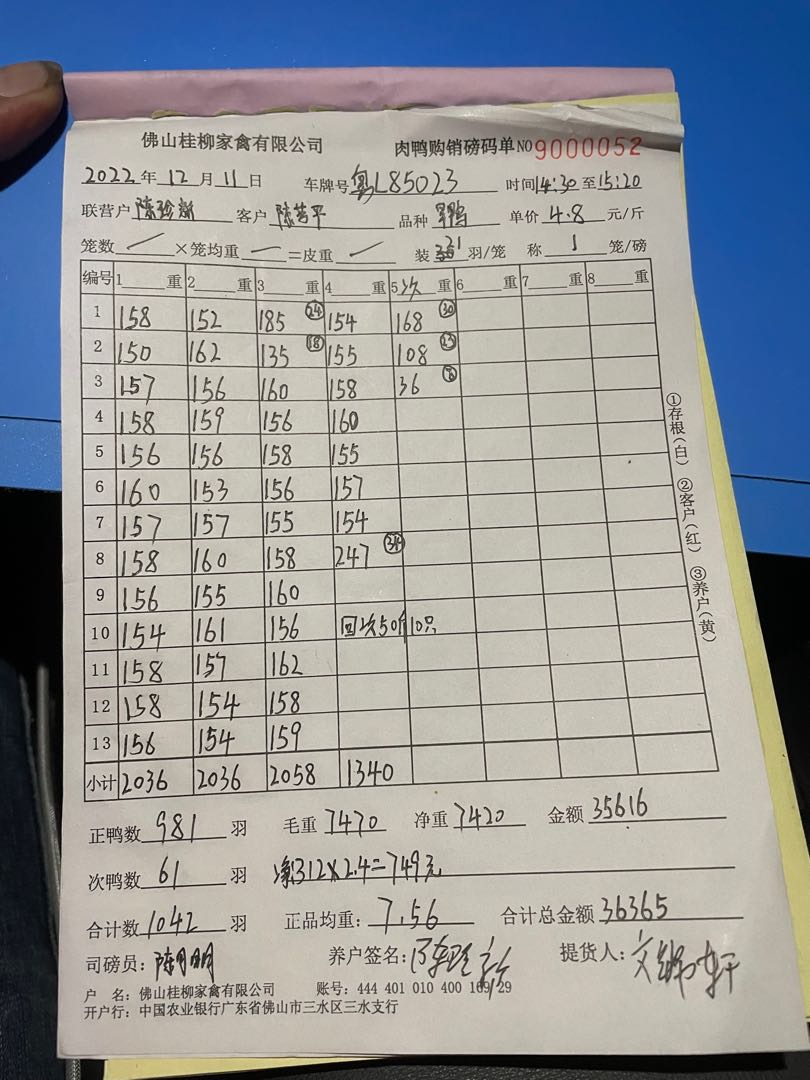 佛山桂柳家禽有限公司 肉鸭购销磅码单 NO 9000052
2022年12月11日 车牌号粤L85023 时间14:30至15:20
联营户 客户 品种 单价4.8元/斤
笼数 / ×笼均重 — =皮重 / 装 21 羽/笼 称 1 笼/磅
编号 1 重 2 重 3 重 4 重 5次 重 6 重 7 重 8 重
1 158 152 185 24 154 168 30
2 150 162 135 18 155 108 23
3 157 156 160 158 36 8
4 158 159 156 160
5 156 156 158 155
6 160 153 156 157
7 157 157 155 154
8 158 160 158 247 34
9 156 155 160
10 154 161 156 回次50斤10只
11 158 157 162
12 158 154 158
13 156 154 159
小计 2036 2036 2058 1340
正鸭数 981 羽 毛重 7470 净重 7420 金额 35616
次鸭数 61 羽 净312×2.4=749元
合计数 1042 羽 正品均重: 7.56 合计总金额 36365
司磅员: 养户签名: 提货人:
户 名: 佛山桂柳家禽有限公司 账号: 444 401 010 400 169 29
开户行: 中国农业银行广东省佛山市三水区三水支行
①存根(白) ②客户(红) ③养户(黄)